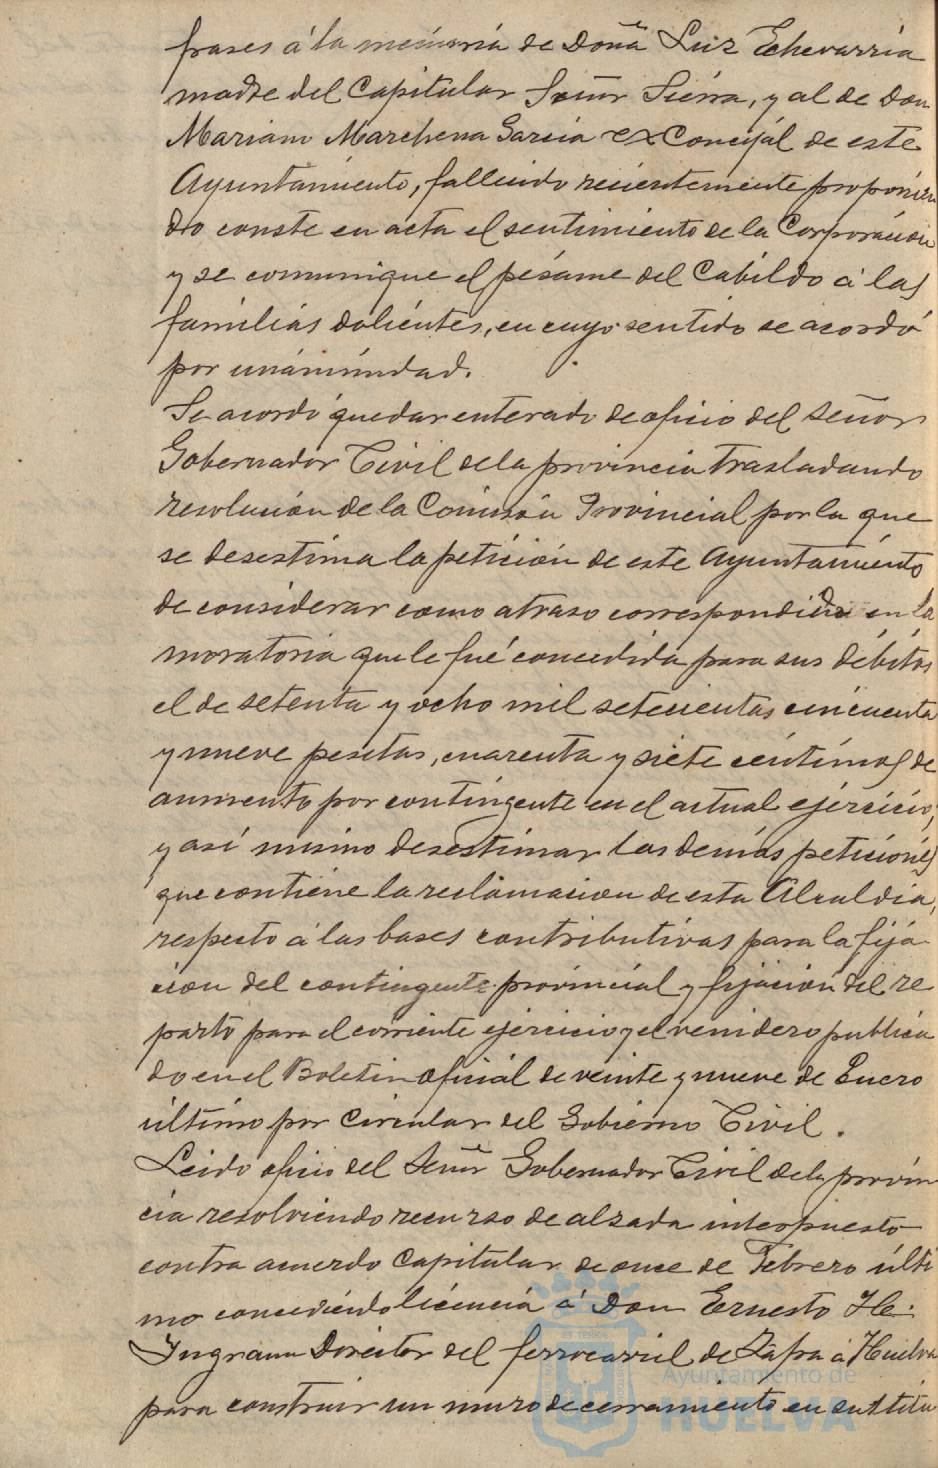 frases á la memoria de Doña Luz Echevarria
madre del Capitular Señor Sierra, y al de Don
Mariano Marchena Garcia ex Concejál de este
Ayuntamiento, fallecido recientemente proponien
do conste en acta el sentimiento de la Corporación
y se comunique el pésame del Cabildo á las
familias dolientes, en cuyo sentido se acordó
por unánimidad.
Se acordó quedar enterado de oficio del Señor
Gobernador Civil de la provincia trasladando
resolución de la Comisión Provincial por la que
se desestima la petición de este Ayuntamiento
de considerar como atraso correspondido en la
moratoria que le fué concedida para sus débitos
el de setenta y ocho mil setecientas cincuenta
y nueve pesetas, cuarenta y siete céntimos de
aumento por contingente en el actual ejercicio,
y así mismo desestimar las demás peticiónes
que contiene la reclamacion de esta Alcaldía,
respecto á las bases contributivas para la fijá
cion del contingente provincial y fijación del re
parto para el corriente ejercicio y el venidero publica
do en el Boletin oficial de veinte y nueve de Enero
último por Circular del Gobierno Civil.
Leido oficio del Señor Gobernador Civil de la provin
cia resolviendo recurso de alzada interpuesto
contra acuerdo Capitular de once de Febrero últi
mo concediéndo licencia á Don Ernesto He.
Yngram Director del ferrocarril de Zafra á Huelva
para construir un muro de cerramiento en sustitu
Ayuntamiento de
HUELVA